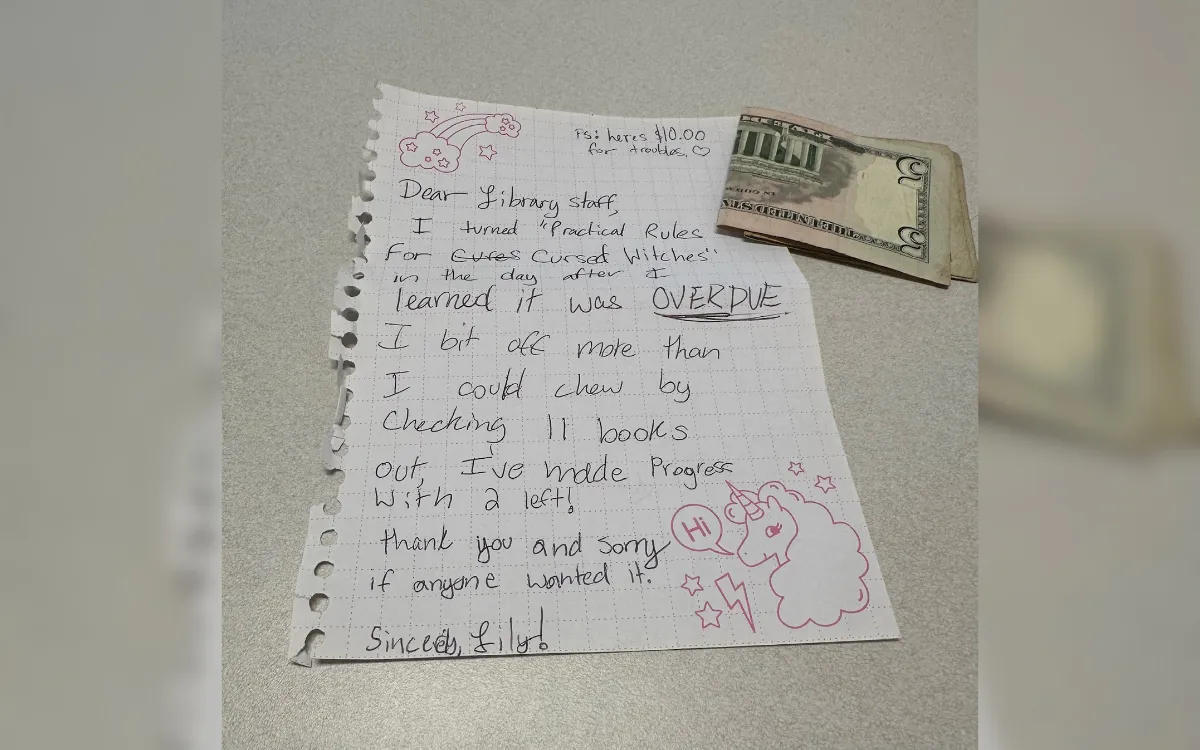 Ps: heres $10.00
for troubles, ♡
Dear Library staff,
I turned "Practical Rules
For Cures Cursed Witches"
in the day after I
learned it was OVERDUE
I bit off more than
I could chew by
Checking 11 books
out, I've made Progress
With 2 left!
thank you and sorry
if anyone wanted it.
Sincerely, Lily!
Hi
5
5
THE UNITED STA